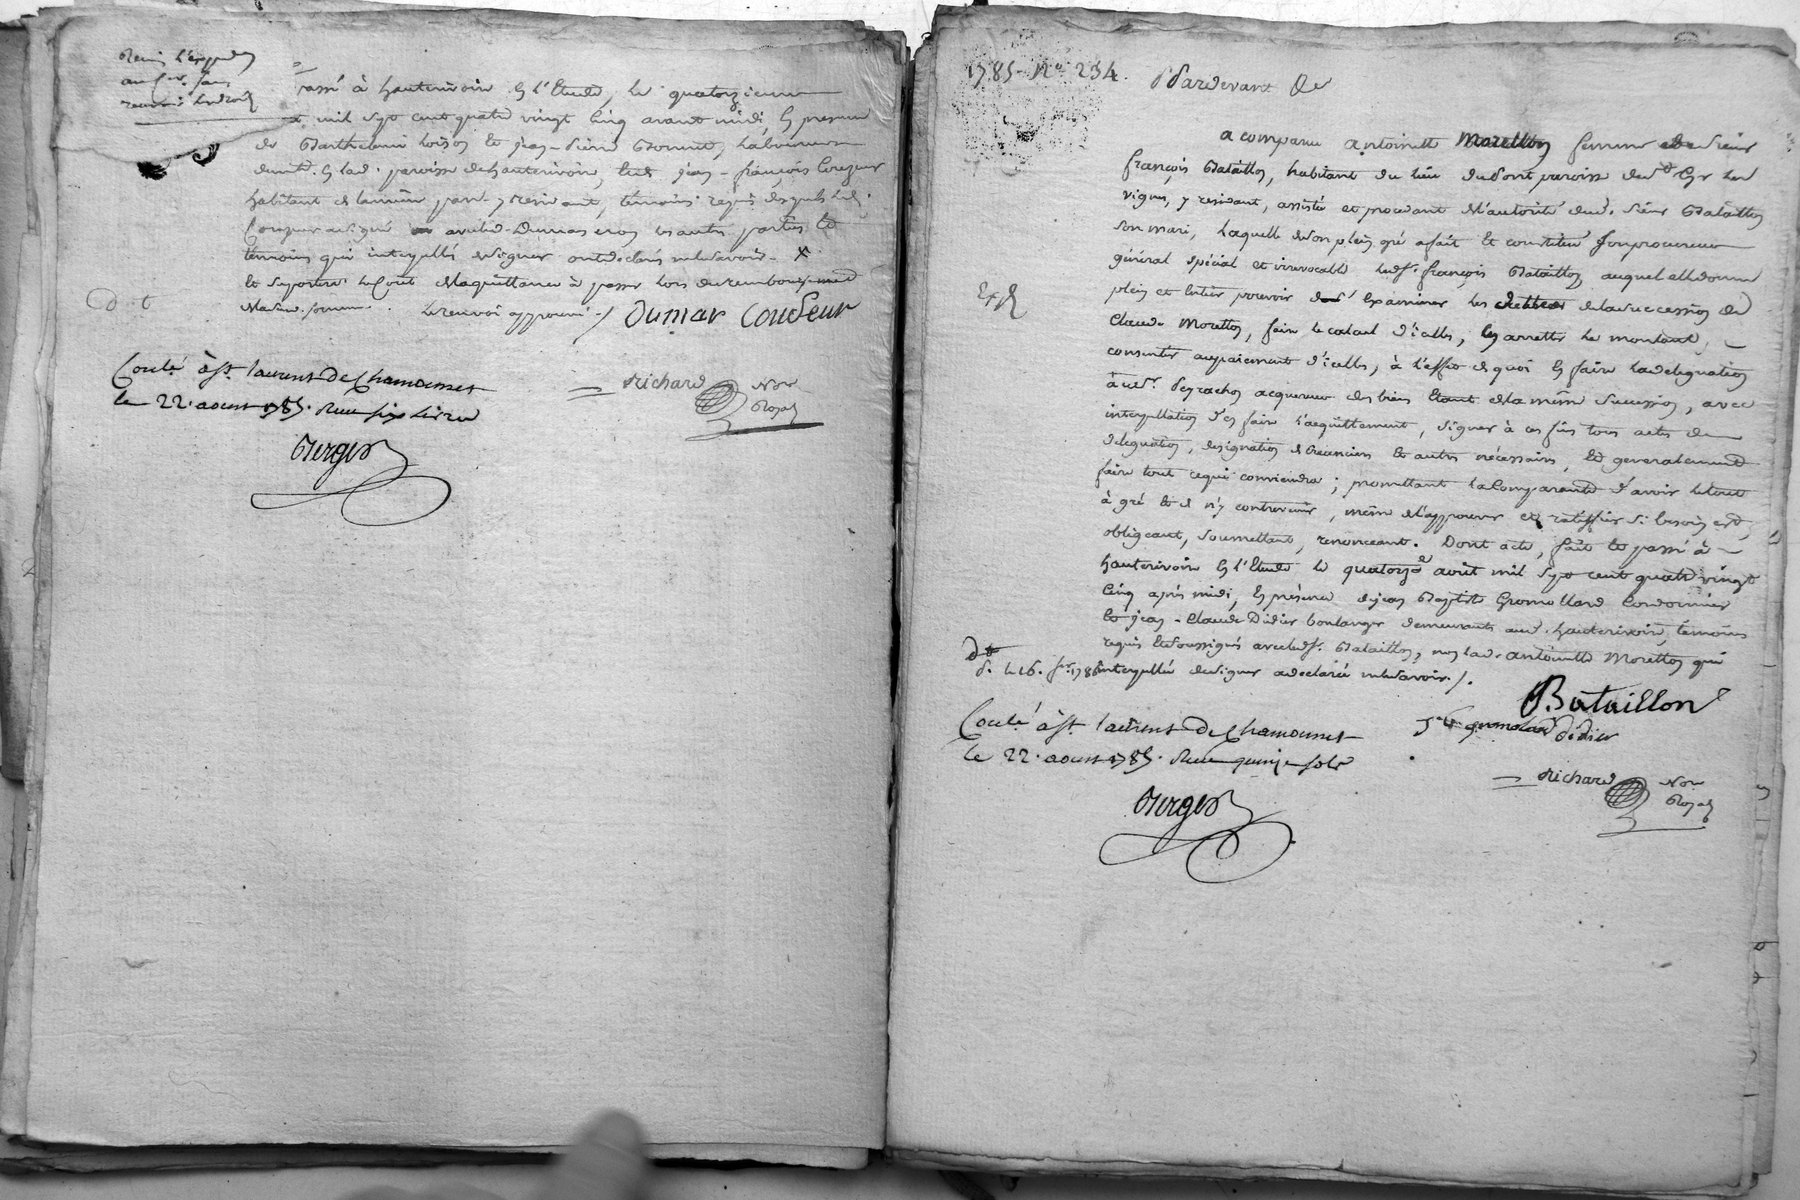 Remis l'expedon
au Sr. sans
renvoi
passé à hauterivoire En l'Etude, Le quatorzieme
mil sept cent quatre vingt Cinq avant midi, En presence
de Barthelemi Loison Et jean-Pierre Bonnet, Laboureurs
demt. En lad. paroisse de hauterivoire, jean-françois
habitant de la même part y residant, témoins requis
soussigné avec led. Dumas non les autres parties Et
témoins qui interpellés de signer ont declaré ne le savoir. X
Et suportera Le Cout de la quittance à passer Lors du remboursement
de lad. somme. Le renvoi approuvé./.
D t
Dumas Coudeur
Contlé à St. laurent De Chamousset
le 22. aoust 1785. Reçu six Livres
Berger
Richard Nore
Royal
1785- No. 234.
Pardevant &e
a comparu antoinette Moretton femme de Sieur
françois Bataillon, habitant du lieu du Pont paroisse de St Cyr Les
vignes, y residant, assistée et procedant de l'autorité dud. Sieur Bataillon
Son mari, Laquelle de son plein gré a fait Et constitué Son procureur
général spécial et irrevocable led. Sr. françois Bataillon auquel elle donne
plein et Entier pouvoir d'Examiner Les dettes de la succession de
Claude Moretton, faire le calcul d'icelles, En arretter Le montant,
consentir au paiement d'icelles, à L'effet de quoi En faire La delegation
à Sr. Peyrachon acquereur des biens Etant de la même Succession, avec
interpellation d'en faire l'acquittement, Signer à ces fins tous actes de
delegation, designation de creanciers Et autres nécessaires, Et generalement
faire tout ce qui conviendra; promettant La Comparante d'avoir Le tout
à gré Et de n'y contrevenir, même de l'approuver et ratiffier Si besoin est,
obligeant, Soumettant, renonceant. Dont acte, fait Et passé à
hauterivoire En l'Etude Le quatorze août mil Sept cent quatre vingt
Cinq après midi, En présence de jean Baptiste Gromollard Cordonnier
Et jean-Claude Didier boulanger demeurants aud. hauterivoire, témoins
requis Et Soussignés avec led. Sr. Bataillon, non lad. antoinette Moretton qui
interpellée de Signer a declaré ne le savoir./.
Exp
D. le 16. 1786
Bataillon
J B gromolard
didier
Contlé à St. laurent De Chamousset
le 22. aoust 1785. Reçu quinze sols
Berger
Richard Nore
Royal